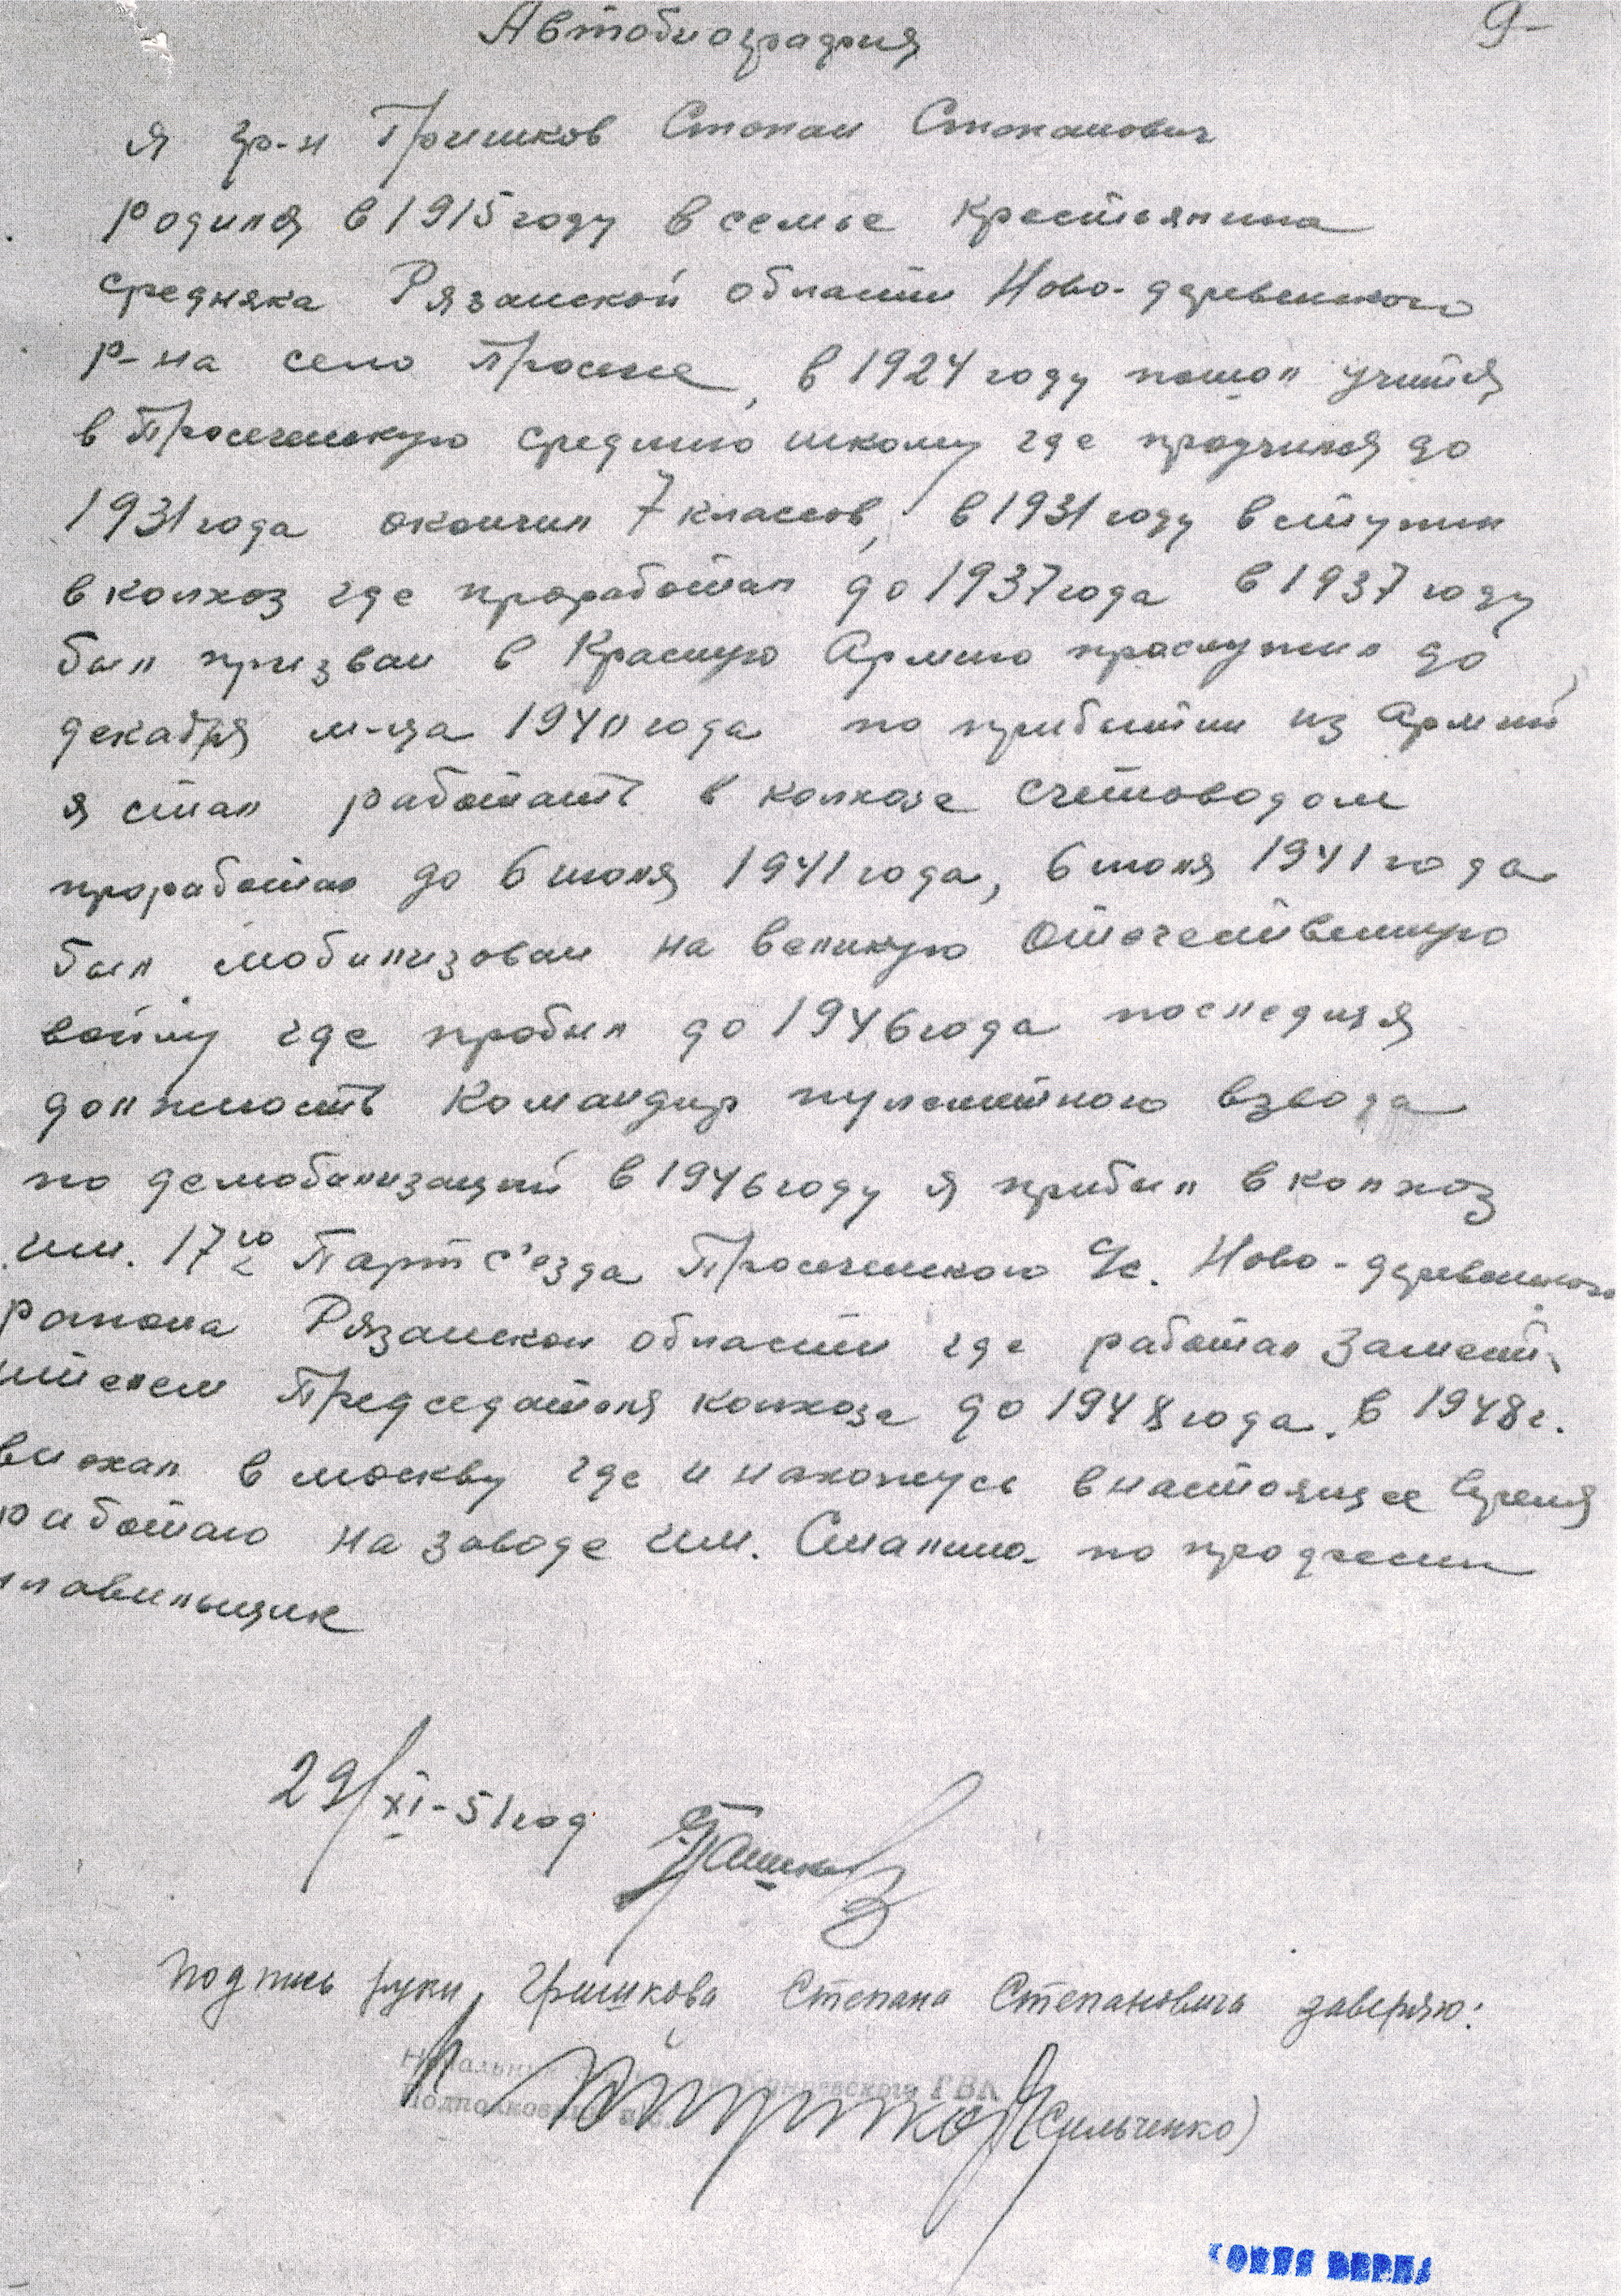 Автобиография
9-
Я гр-н Гришков Степан Степанович
родился в 1915 году в семье крестьянина
средняка Рязанской области Ново-деревенского
р-на село Просече, в 1924 году пошол учится
в Просеченскую среднию школу где проучился до
1931 года окончил 7 классов, в 1931 году вступил
в колхоз где проработал до 1937 года в 1937 году
был призван в Красную Армию прослужил до
декабря м-ца 1940 года по прибытии из Армий
я стал работать в колхозе счетоводом
проработал до 6 июля 1941 года, 6 июля 1941 года
был мобилизован на великую Отечественную
войну где пробыл до 1946 года последняя
должность Командир пулеметного взвода
по демобилизаций в 1946 году я прибыл в колхоз
им. 17го Парт с'езда Просеченского с/с. Ново-деревенского
района Рязанской области где работал Замести
ителем Председателя колхоза до 1948 года. в 1948 г.
выехал в москву где и нахожусь в настоящее время
работаю на заводе им. Сталина по професии
плавильщик
29/XI-51 год Гришков
Подпись руки Гришкова Степана Степановича заверяю:
Начальник Крипевского ГВК
Подполковник
(Сильченко)